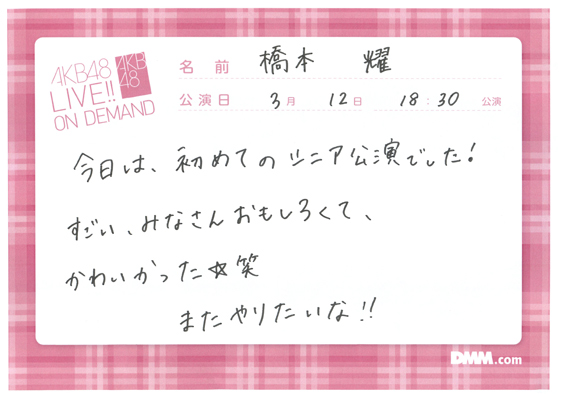 AKB48
LIVE!!
ON DEMAND
AKB
48
名前 橋本 耀
公演日 3月 12日 18:30 公演
今日は、初めてのシニア公演でした!
すごい、みなさんおもしろくて、
かわいかった☆笑
またやりたいな!!
DMM.com